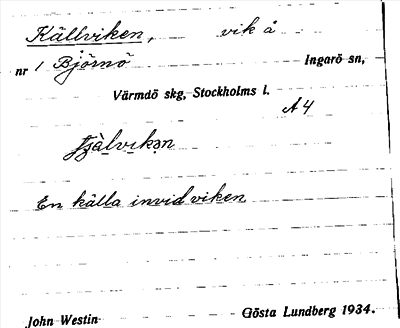 Källviken, vik å
nr 1 Björnö Ingarö sn,
Värmdö skg, Stockholms l.
A4
En källa invid viken
John Westin Gösta Lundberg 1934.